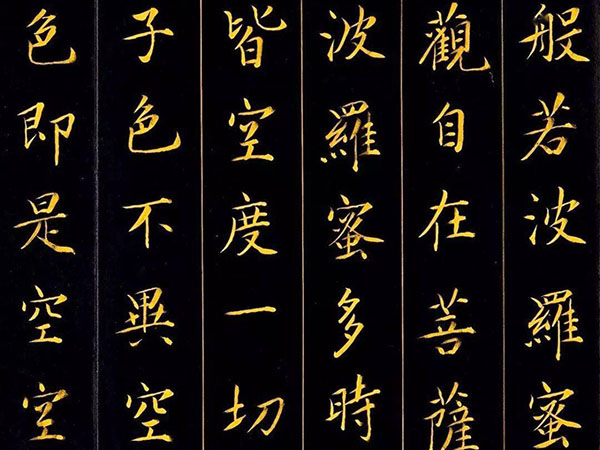 般若波羅蜜
觀自在菩薩
波羅蜜多時
皆空度一切
子色不異空
色即是空空